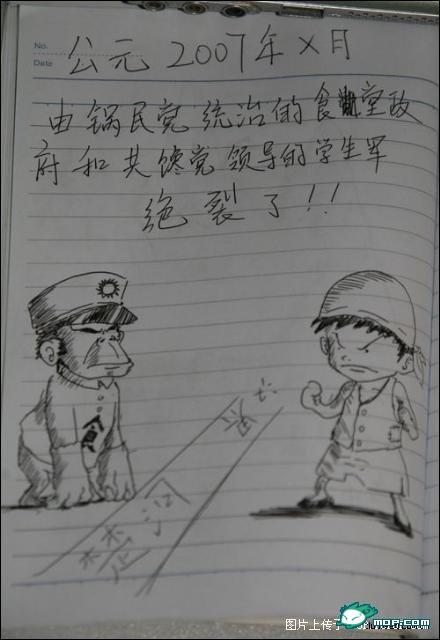 No.
Date
公元 2007年 X月
由锅民党统治的食堂政
府和共馋党领导的学生军
绝裂了!!
食
楚河
图片上传于
MOP.COM